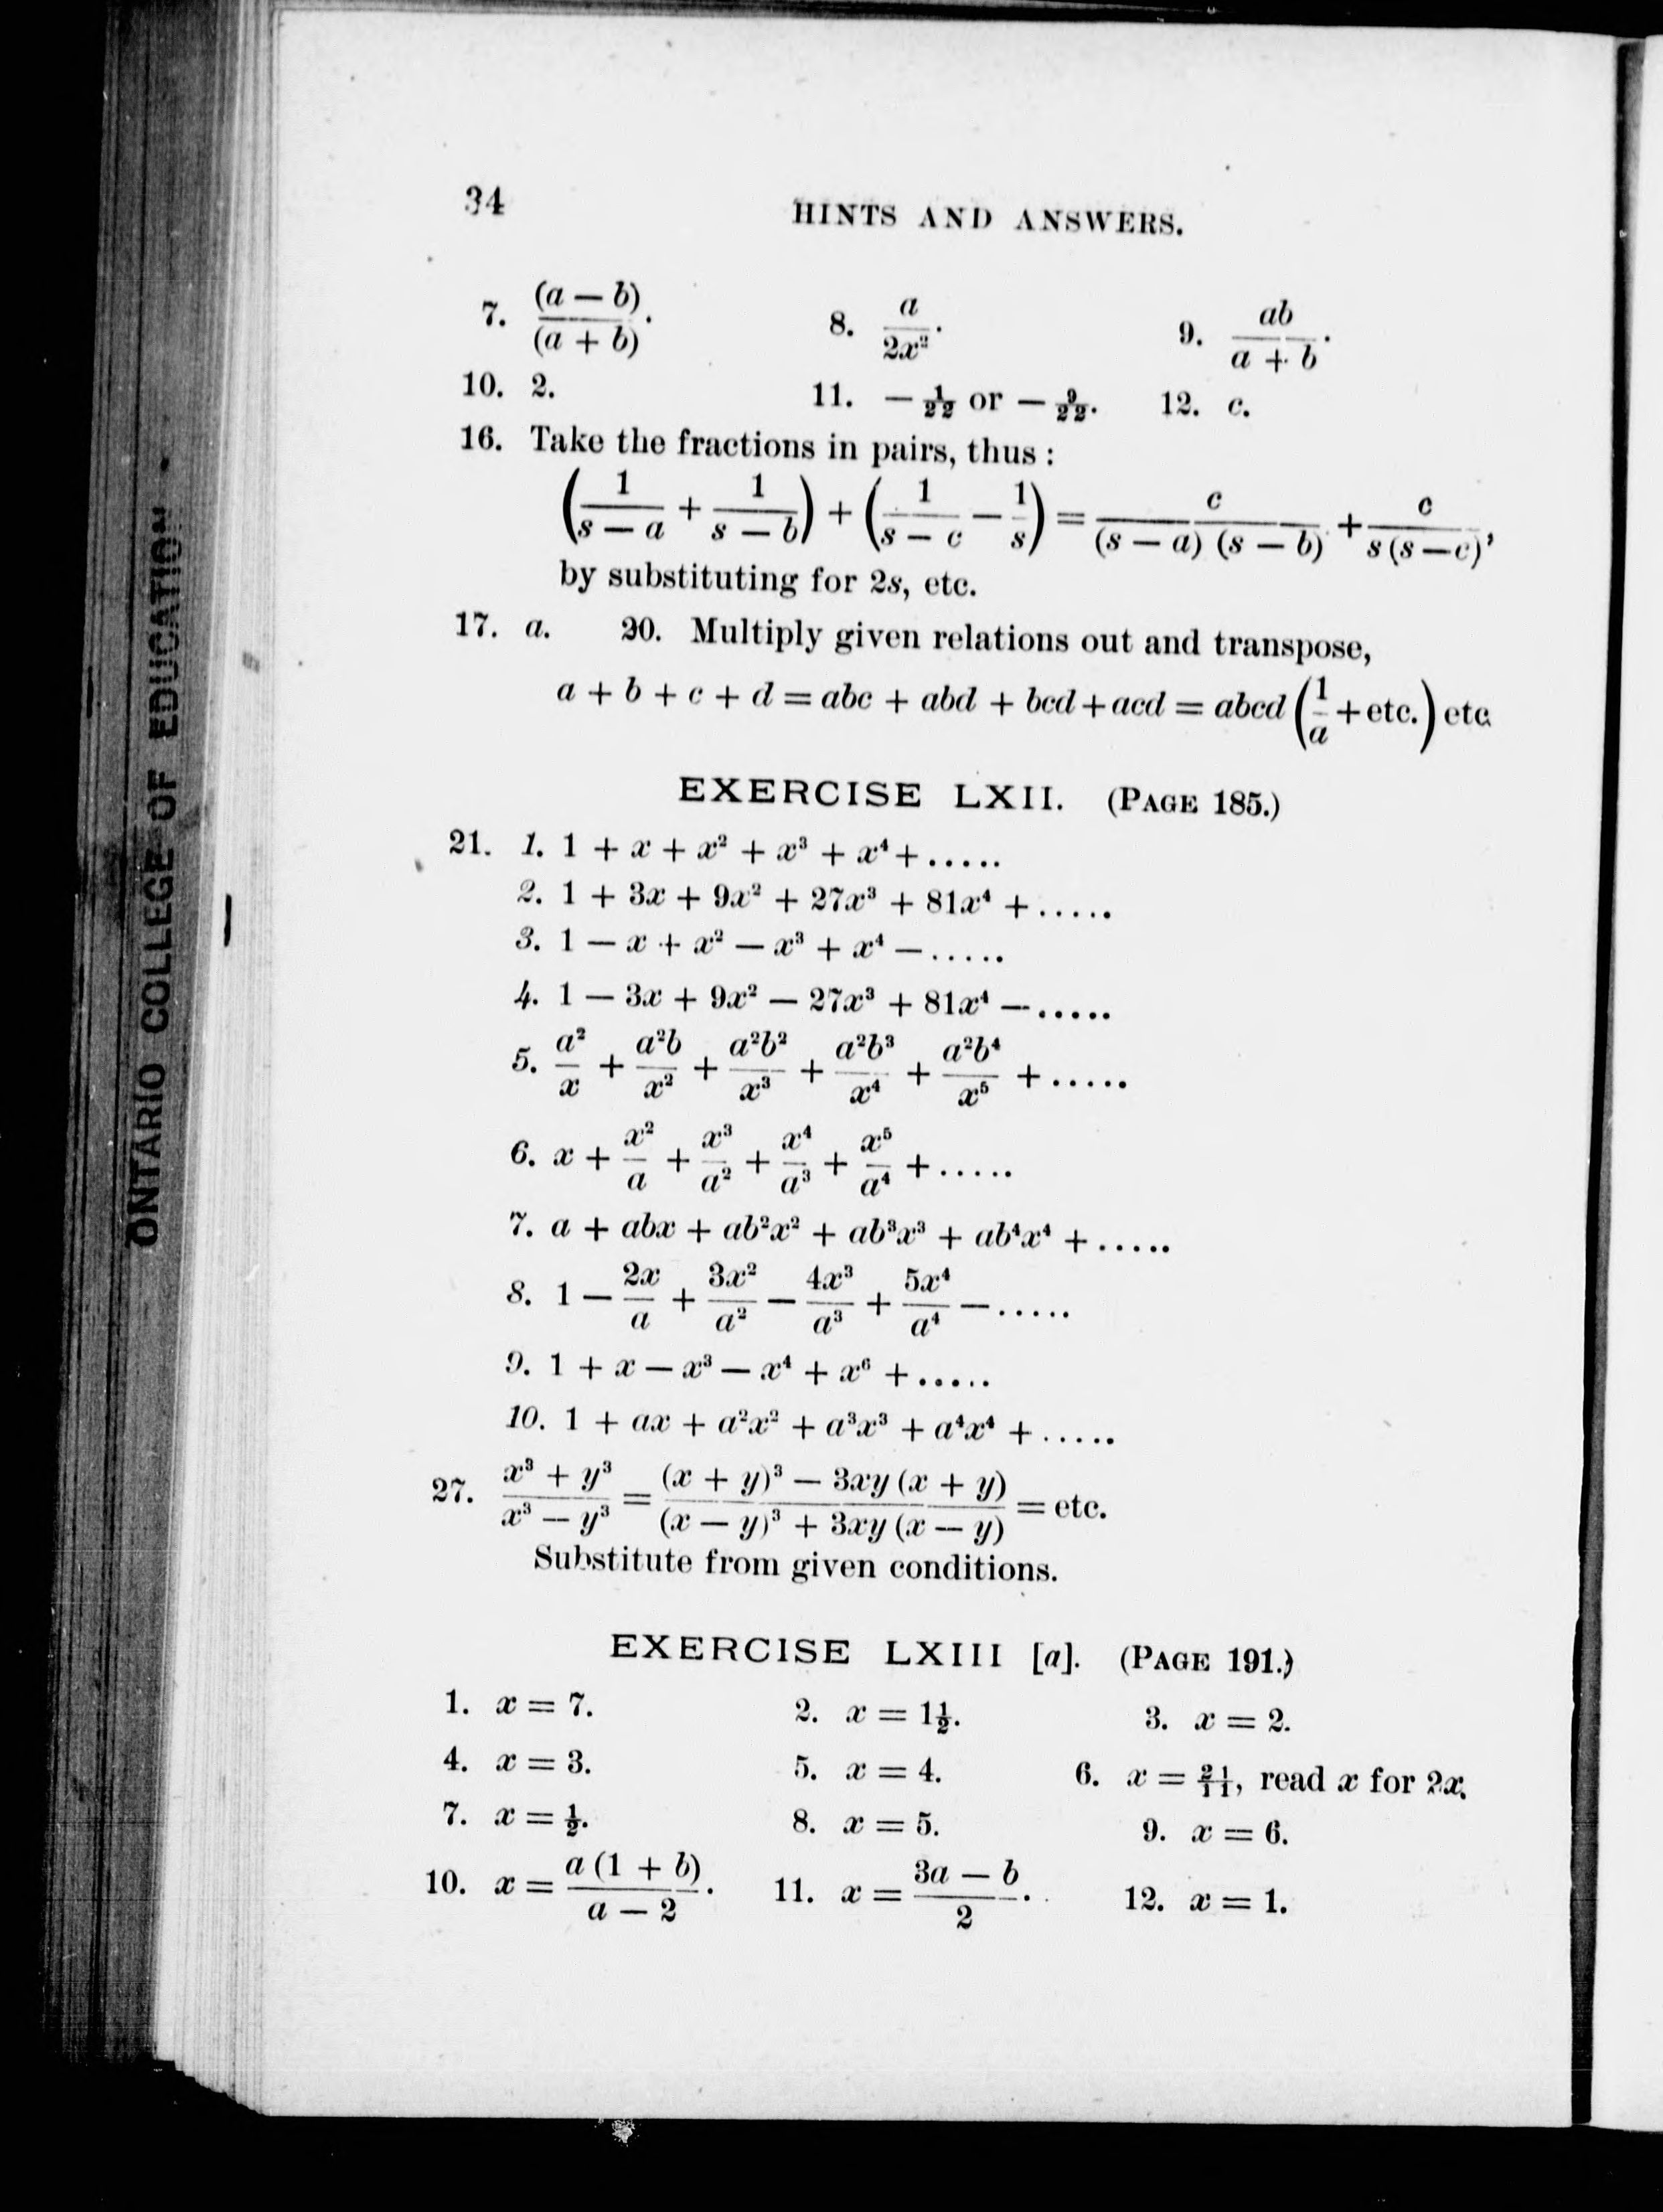 34
HINTS AND ANSWERS.
7. (a − b)/(a + b). 8. a/2x². 9. ab/(a + b).
10. 2. 11. − 1/22 or − 9/22. 12. c.
16. Take the fractions in pairs, thus :
(1/(s − a) + 1/(s − b)) + (1/(s − c) − 1/s) = c/((s − a) (s − b)) + c/(s (s − c)),
by substituting for 2s, etc.
17. a. 20. Multiply given relations out and transpose,
a + b + c + d = abc + abd + bcd + acd = abcd (1/a + etc.) etc.
EXERCISE LXII. (PAGE 185.)
21. 1. 1 + x + x² + x³ + x⁴ + .....
2. 1 + 3x + 9x² + 27x³ + 81x⁴ + .....
3. 1 − x + x² − x³ + x⁴ − .....
4. 1 − 3x + 9x² − 27x³ + 81x⁴ − .....
5. a²/x + a²b/x² + a²b²/x³ + a²b³/x⁴ + a²b⁴/x⁵ + .....
6. x + x²/a + x³/a² + x⁴/a³ + x⁵/a⁴ + .....
7. a + abx + ab²x² + ab³x³ + ab⁴x⁴ + .....
8. 1 − 2x/a + 3x²/a² − 4x³/a³ + 5x⁴/a⁴ − .....
9. 1 + x − x³ − x⁴ + x⁶ + .....
10. 1 + ax + a²x² + a³x³ + a⁴x⁴ + .....
27. (x³ + y³)/(x³ − y³) = ((x + y)³ − 3xy (x + y))/((x − y)³ + 3xy (x − y)) = etc.
Substitute from given conditions.
EXERCISE LXIII [a]. (PAGE 191.)
1. x = 7. 2. x = 1½. 3. x = 2.
4. x = 3. 5. x = 4. 6. x = 21/11, read x for 2x.
7. x = ½. 8. x = 5. 9. x = 6.
10. x = a (1 + b)/(a − 2). 11. x = (3a − b)/2. 12. x = 1.
ONTARIO COLLEGE OF EDUCATION